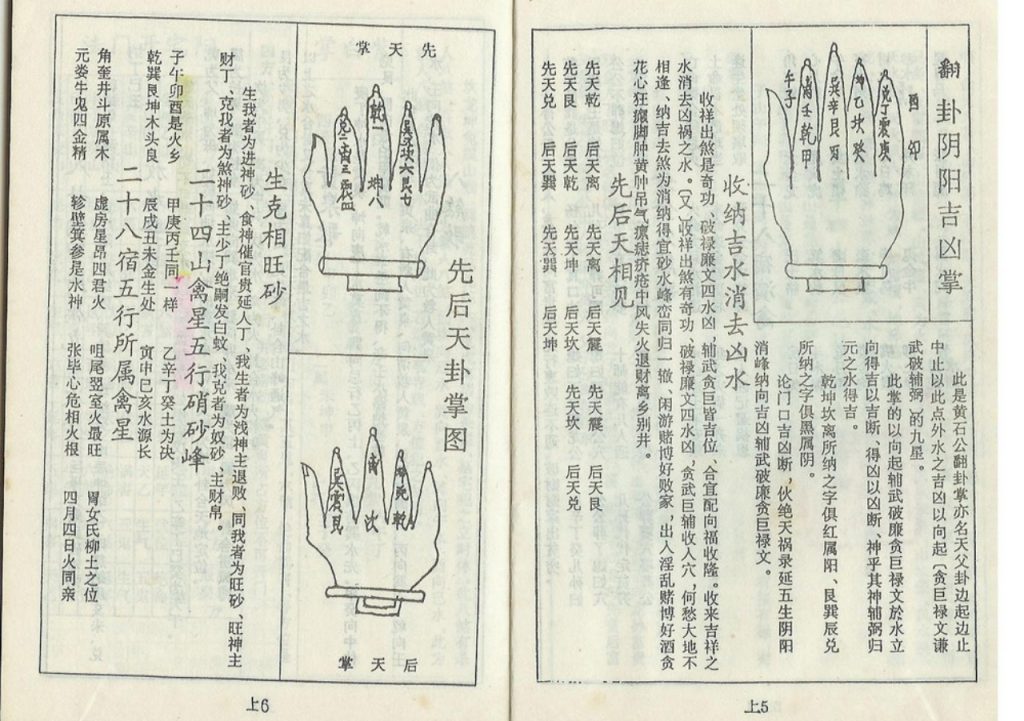 翻卦阴阳吉凶掌
酉
卯
兑丁震庚
乙坎癸
巽辛艮丙
壬乾甲
午
子
此是黄石公翻卦掌亦名天父卦边起边止
中止以此点外水之吉凶以向起〔贪巨禄文谦
武破辅弼〕的九星。
此掌的以向起辅武破廉贪巨禄文於水立
向得吉以吉断、得凶以凶断、神乎其神辅弼归
元之水得吉。
乾坤坎离所纳之字俱红属阳、艮巽辰兑
所纳之字俱黑属阴。
论门口吉凶断，伙绝天祸录延五生阴阳
消峰纳向吉凶辅武破廉贪巨禄文。
收纳吉水消去凶水
收祥出煞是奇功、破禄廉文四水凶，辅武贪巨皆吉位、合宜配向福收隆。收来吉祥之
水消去凶祸之水。〔又〕收祥出煞有奇功、破禄廉文四水凶，贪武巨辅收入穴，何愁大地不
相逢、纳吉去煞为消纳得宜砂水峰峦同归一辙、闲游赌博好败家，出人淫乱赌博好酒贪
花心狂癫脚肿黄肿吊气癀痣疥疮中风失火退财离乡别井。
先后天相见
先天乾　后天离　先天离　后天震　先天震　后天艮
先天艮　后天乾　先天坤　后天坎　先天坎　后天兑
先天兑　后天巽　先天巽　后天坤
上5
先后天卦掌图
先天掌
乾一
坤八
巽五坎六艮七
兑二离三震四
后天掌
离
坎
坤兑
乾
巽震艮
生克相旺砂
生我者为进神砂、食神催官贵延人丁、我生者为浅神主退败、同我者为旺砂、旺神主
财丁、克我者为煞神砂、主少丁绝嗣发白蚁、我克者为奴砂、主财帛。
二十四山禽星五行硝砂峰
子午卯酉是火乡　甲庚丙壬同一样　乙辛丁癸土为决
乾巽艮坤木头良　辰戌丑未金生处　寅申巳亥水源长
二十八宿五行所属禽星
角奎井斗原属木　虚房星昴四君火　咀尾翌室火最旺　胃女氏柳土之位
元娄牛鬼四金精　轸壁箕参是水神　张毕心危相火根　四月四日火同亲
上6